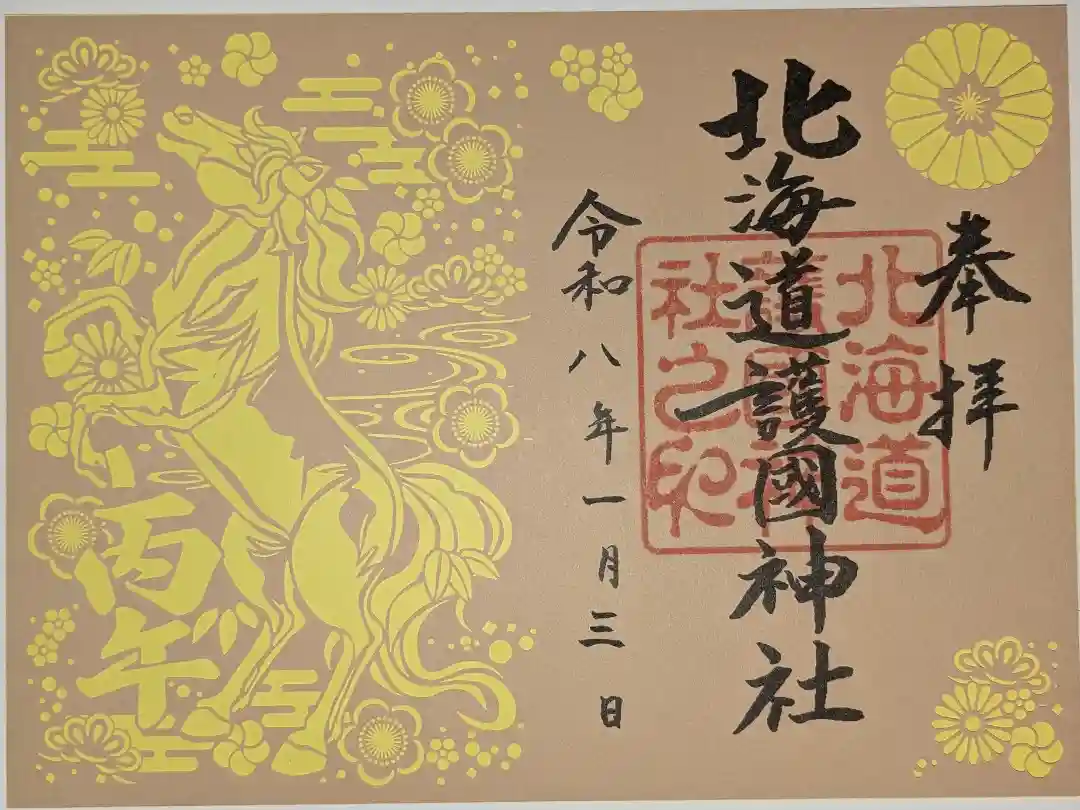 奉拝
北海道護國神社
北海道
護國神
社之印
令和八年一月三日
丙午